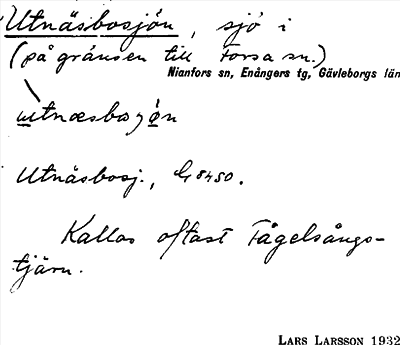 Utnäsbosjön, sjö i
(på gränsen till Forsa sn.)
Nianfors sn, Enångers tg, Gävleborgs län
Utnäsbosj.,
Kallas oftast Fågelsångs-
tjärn.
LARS LARSSON 1932